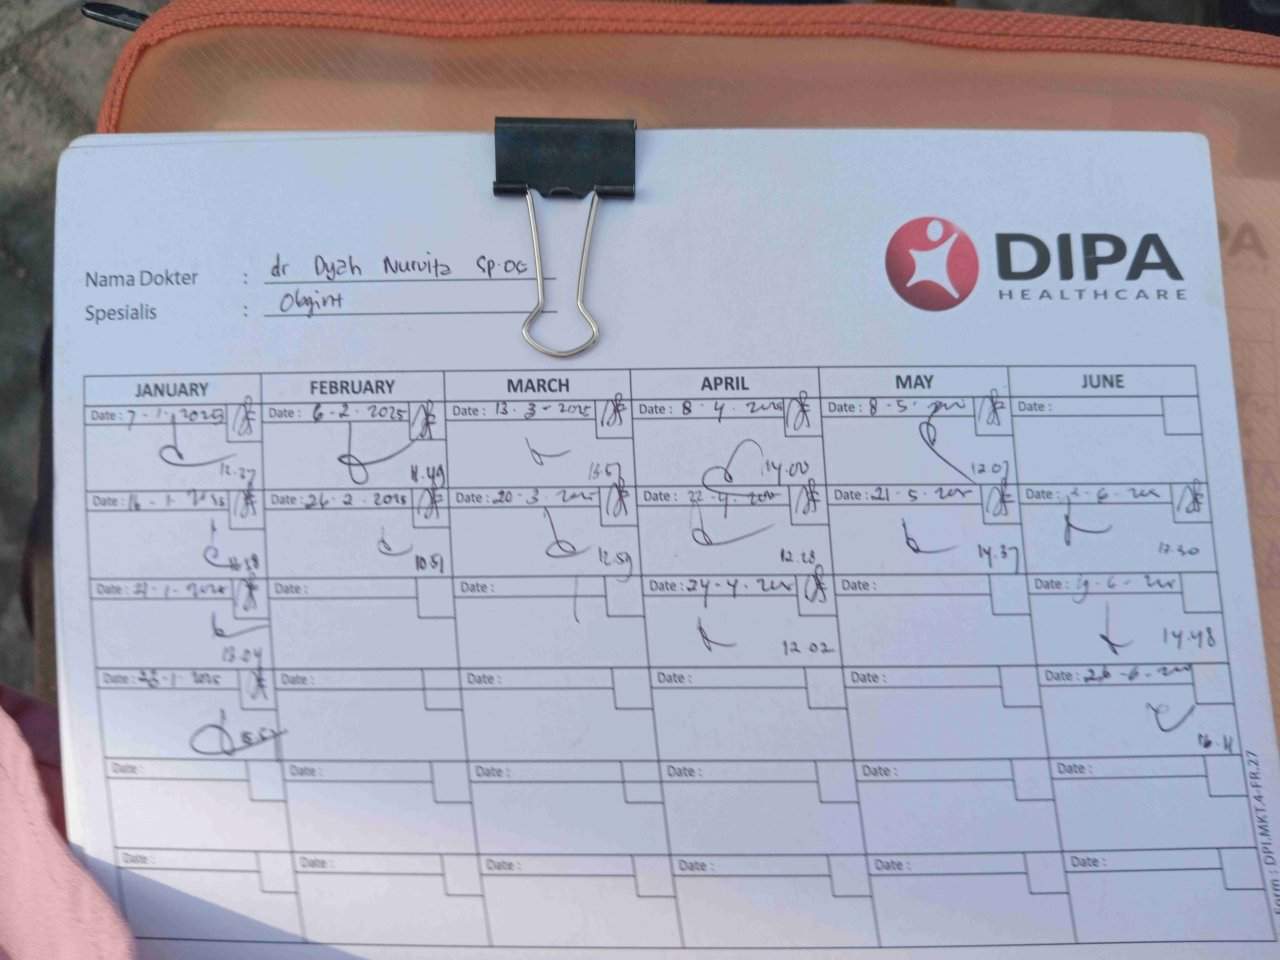 DIPA
HEALTHCARE
Nama Dokter : dr Dyah Nurvita Sp.OG
Spesialis : Obgin
JANUARY FEBRUARY MARCH APRIL MAY JUNE
Date : 7-1-2025 Date : 6-2-2025 Date : 13-3-2025 Date : 8-4-2025 Date : 8-5- Date :
12.27 11.49 13.57 14.00 12.07
Date : 16-1-2025 Date : 26-2-2025 Date : 20-3-2025 Date : 22-4-2025 Date : 21-5- Date :
10.51 12.59 12.28 14.37 12.30
Date : Date : Date : Date : 24-4- Date : Date :
13.04 12.02 14.48
Date : Date : Date : Date : Date : Date : 26-6-
16.11
Date : Date : Date : Date : Date : Date :
Date : Date : Date : Date : Date : Date :
Form : DPI.MKT.4-FR.27